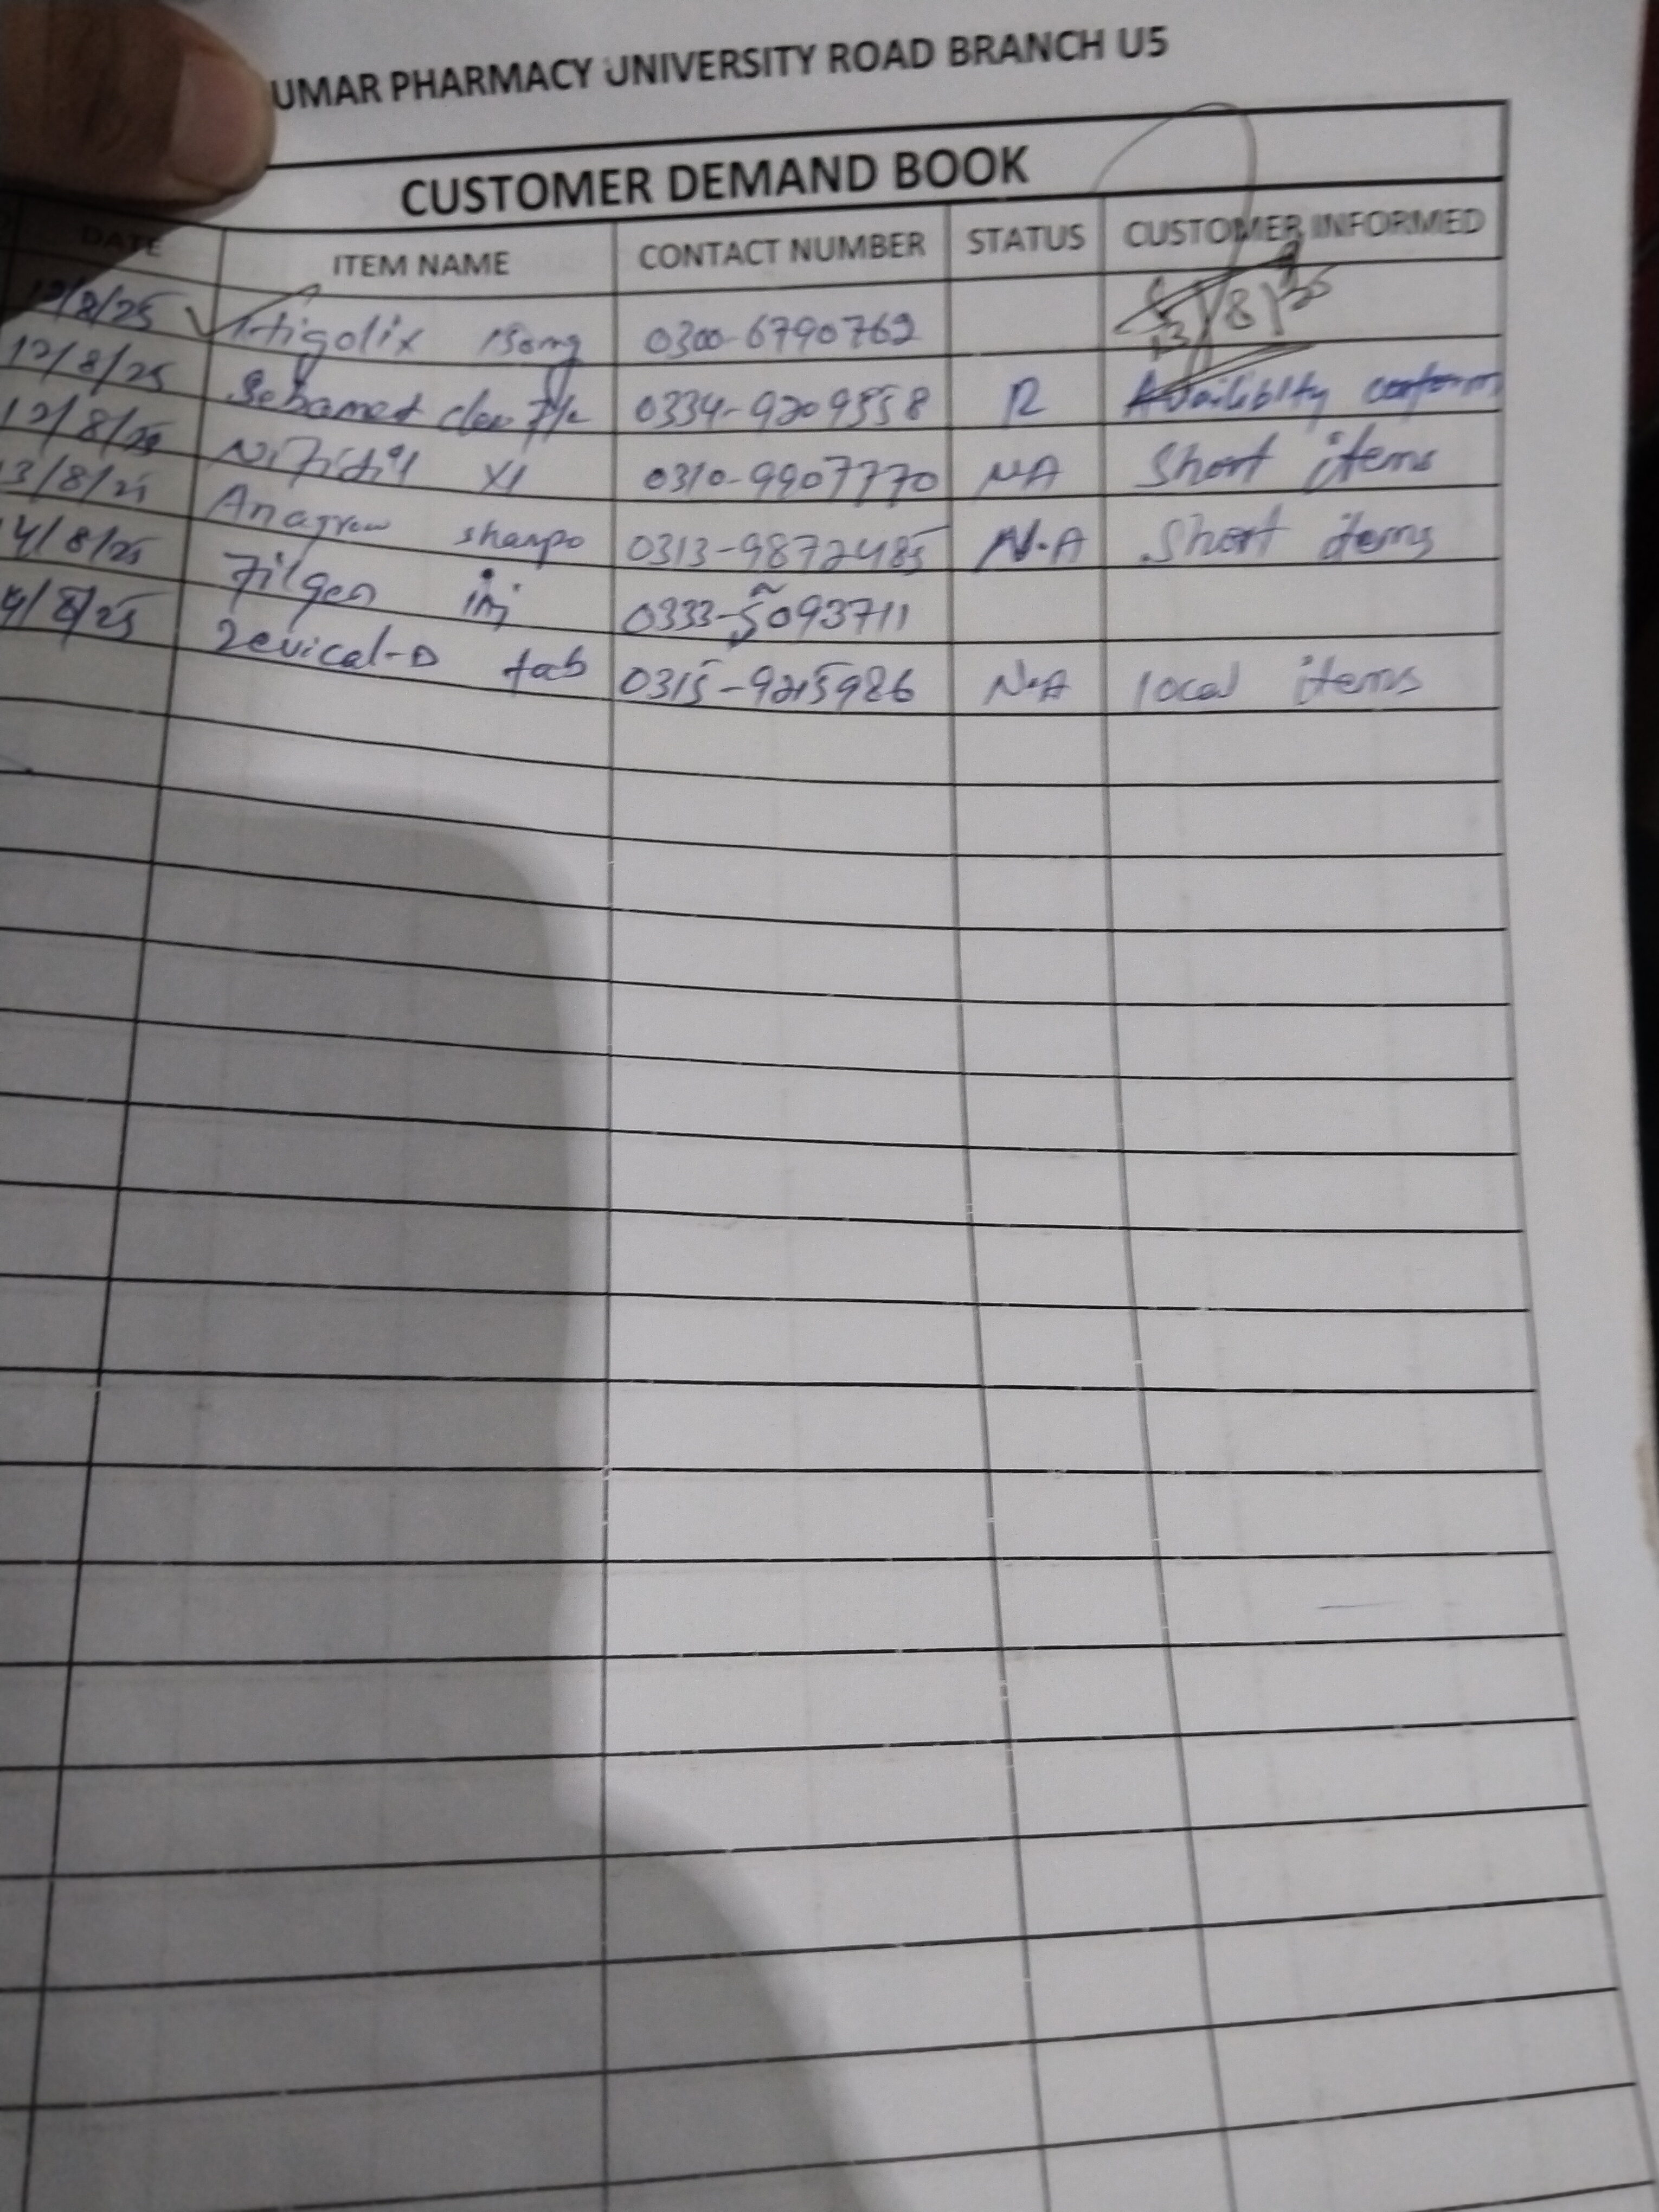 UMAR PHARMACY UNIVERSITY ROAD BRANCH U5
CUSTOMER DEMAND BOOK
DATE ITEM NAME CONTACT NUMBER STATUS CUSTOMER INFORMED
12/8/25 0300-6790762 13/8/25
12/8/25 Sebamed 0334-9209558 R Availiblty conform
12/8/25 0310-9907770 NA Short items
3/8/25 Anagrow shampo 0313-9872485 N.A Short items
4/8/25 Filgen inj 0333-5093711
8/25 Zevical-D tab 0315-9215986 N.A local items